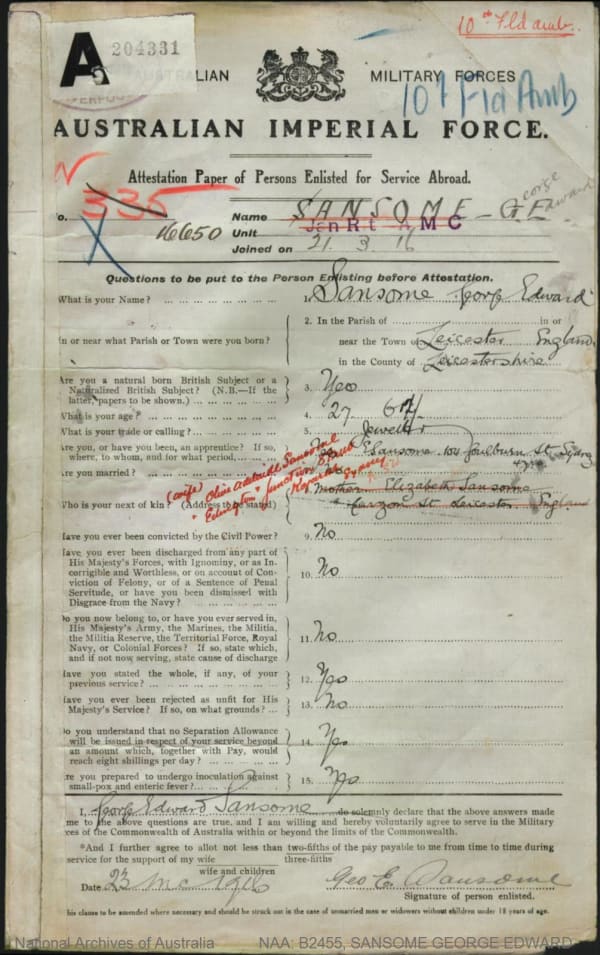 10th Fld amb.
A
204331
AUSTRALIAN MILITARY FORCES
10th Fld Amb
AUSTRALIAN IMPERIAL FORCE.
Attestation Paper of Persons Enlisted for Service Abroad.
335
o. 16650
Name SANSOME - G. E. George Edward
Unit A M C
Joined on 21. 3. 16
Questions to be put to the Person Enlisting before Attestation.
What is your Name? ... 1. Sansome George Edward
2. In the Parish of ... in or
n or near what Parish or Town were you born? near the Town of Leicester England
in the County of Leicestershire
Are you a natural born British Subject or a
Naturalized British Subject? (N.B.—If the 3. Yes
latter, papers to be shown.)
What is your age? 4. 27
What is your trade or calling? 5. Jeweller
Are you, or have you been, an apprentice? If so,
where, to whom, and for what period E Sansome 104 Goulburn St Sydney
4 yrs
Are you married?
(wife) Olive Adelaide Sansome
"Edington" Junction Street
Who is your next of kin? (Address to be stated)
mother Elizabeth Sansome
Curzon St Leicester England
Have you ever been convicted by the Civil Power? 9. No
Have you ever been discharged from any part of
His Majesty's Forces, with Ignominy, or as In-
corrigible and Worthless, or on account of Con- 10. No
viction of Felony, or of a Sentence of Penal
Servitude, or have you been dismissed with
Disgrace from the Navy?
Do you now belong to, or have you ever served in,
His Majesty's Army, the Marines, the Militia,
the Militia Reserve, the Territorial Force, Royal 11. No
Navy, or Colonial Forces? If so, state which,
and if not now serving, state cause of discharge
Have you stated the whole, if any, of your 12. Yes
previous service?
Have you ever been rejected as unfit for His 13. No
Majesty's Service? If so, on what grounds?
Do you understand that no Separation Allowance
will be issued in respect of your service beyond 14. Yes
an amount which, together with Pay, would
reach eight shillings per day?
re you prepared to undergo inoculation against 15. Yes
small-pox and enteric fever?
I, George Edward Sansome do solemnly declare that the above answers made
me to the above questions are true, and I am willing and hereby voluntarily agree to serve in the Military
ces of the Commonwealth of Australia within or beyond the limits of the Commonwealth.
*And I further agree to allot not less than two-fifths of the pay payable to me from time to time during
three-fifths
service for the support of my wife
wife and children
Date 23 Mc 1916 Geo E. Sansome
Signature of person enlisted.
his clause to be amended where necessary and should be struck out in the case of unmarried men or widowers without children under 18 years of age.
National Archives of Australia NAA: B2455, SANSOME GEORGE EDWARD